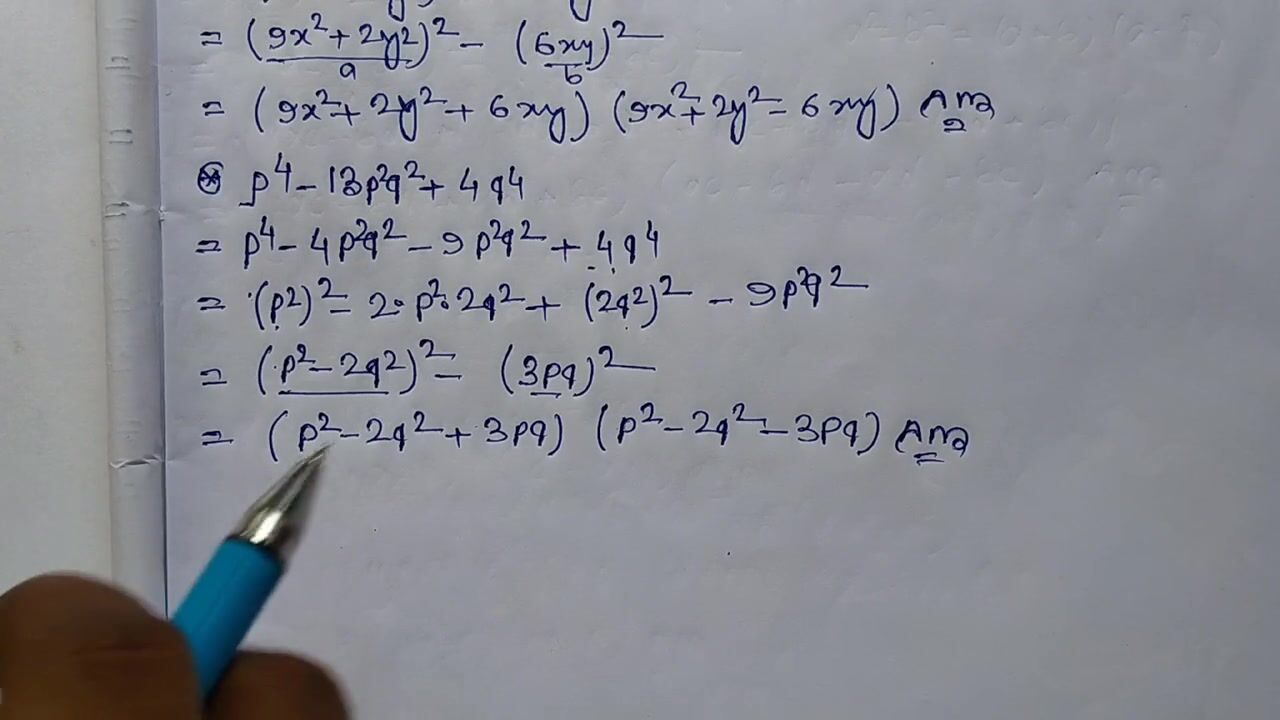 = (9x² + 2y²)² - (6xy)²
a b
= (9x² + 2y² + 6xy) (9x² + 2y² - 6xy) Ans
⊛ p⁴ - 13p²q² + 4q⁴
= p⁴ - 4p²q² - 9p²q² + 4q⁴
= (p²)² - 2·p²·2q² + (2q²)² - 9p²q²
= (p² - 2q²)² - (3pq)²
= (p² - 2q² + 3pq) (p² - 2q² - 3pq) Ans